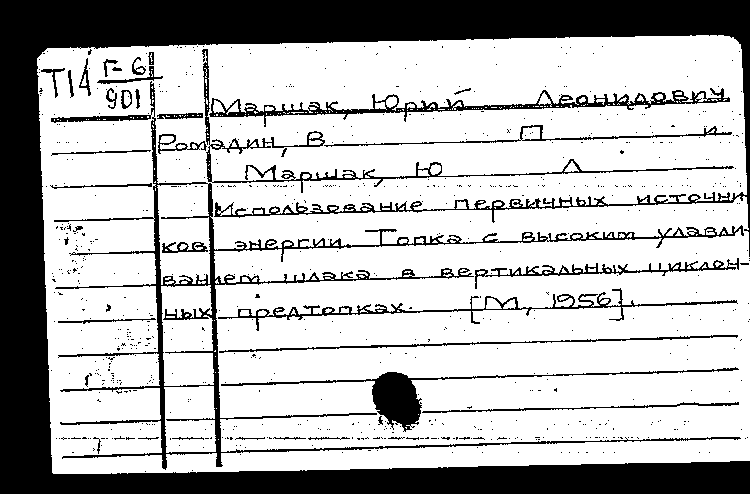 Т14 Г-6
901
Маршак, Юрий Леонидович
Ромадин, В П и
Маршак, Ю Л
Использование первичных источни-
ков энергии. Топка с высоким улавли-
ванием шлака в вертикальных циклон-
ных предтопках. [М, 1956].